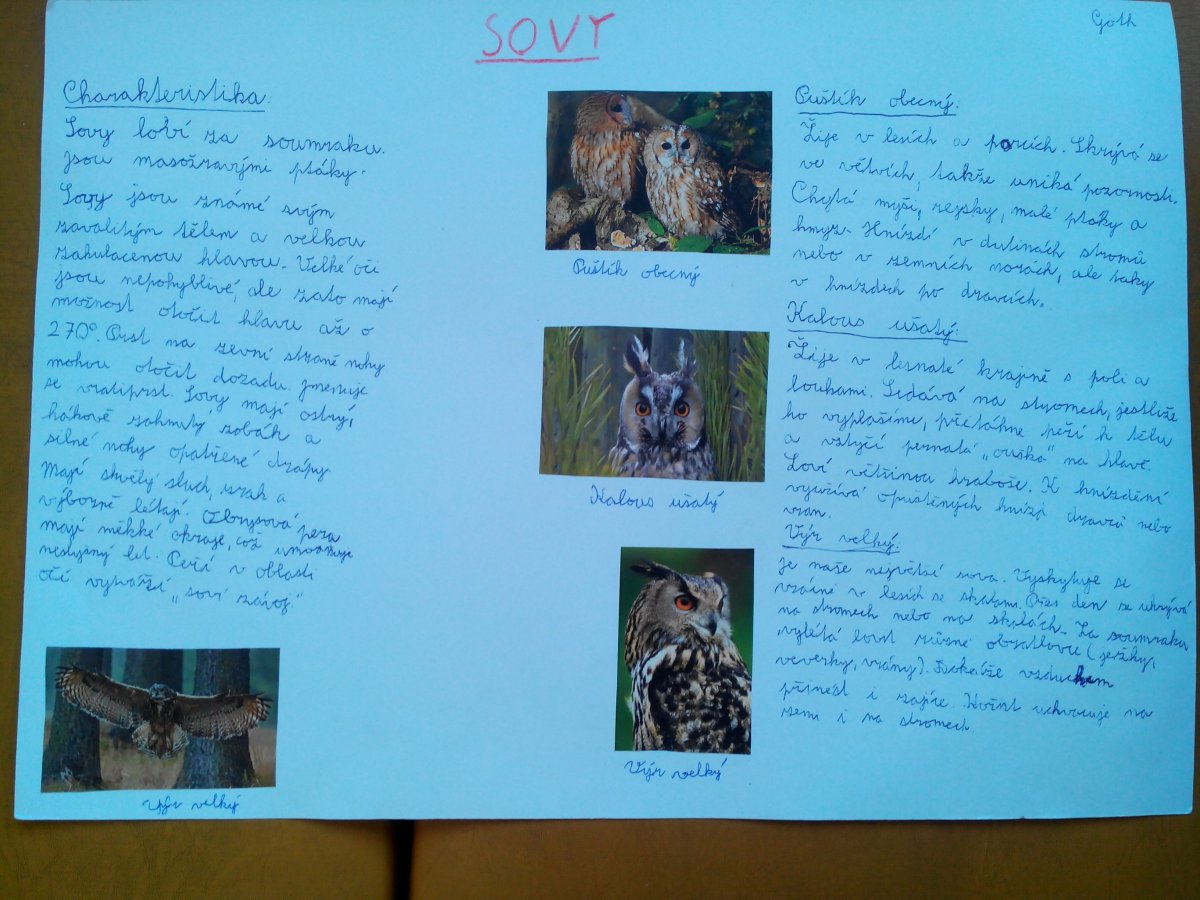 SOVY
Göth
Charakteristika:
Sovy loví za soumraku.
jsou masožravými ptáky.
Sovy jsou známé svým
zavalitým tělem a velkou
zakulacenou hlavou. Velké oči
jsou nepohyblivé, ale zato mají
možnost otočit hlavu až o
270°. Prst na zevní straně nohy
mohou otočit dozadu. jmenuje
se vratiprst. Sovy mají ostrý,
hákově zahnutý zobák a
silné nohy opatřené drápy.
Mají skvělý sluch, zrak a
výborně létají. Obrysová pera
mají měkké okraje, což umožnuje
neslyšný let. Peří v oblasti
očí vytváří „soví závoj."
Výr velký
Puštík obecný
Kalous ušatý
Výr velký
Puštík obecný:
Žije v lesích a parcích. Skrývá se
ve větvích, takže uniká pozornosti.
Chytá myši, rejsky, malé ptáky a
hmyz. Hnízdí v dutinách stromů
nebo v zemních norách, ale taky
v hnízdech po dravcích.
Kalous ušatý:
Žije v lesnaté krajině s poli a
loukami. Sedává na stromech, jestliže
ho vyplašíme, přitáhne peří k tělu
a vztyčí pernatá „ouška" na hlavě.
Loví většinou hraboše. K hnízdění
využívá opuštěných hnízd dravců nebo
vran.
Výr velký:
je naše největší sova. Vyskytuje se
vzácně v lesích se skalami. Přes den se ukrývá
na stromech nebo na skalách. Za soumraku
vylétá lovit různé obratlovce (ježky,
veverky, vrány). Dokáže vzduchem
přinést i zajíce. Kořist uchvacuje na
zemi i na stromech